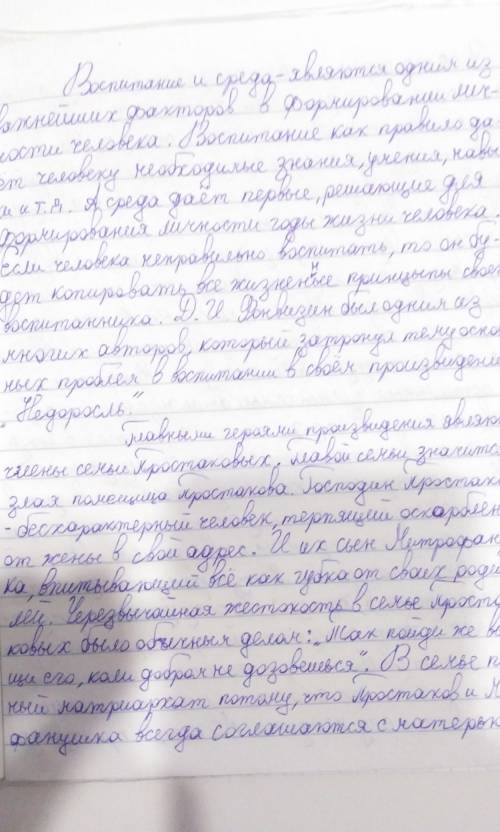 Воспитание и среда - являются одним из
важнейших факторов в формировании лич-
ности человека. Воспитание как правило да-
ёт человеку необходимые знания, умения, навы
и и т.д. А среда даёт первые, решающие для
формирования личности годы жизни человека.
Если человека неправильно воспитать, то он бу-
дет копировать все жизненные принцыпы своег
воспитанника. Д. И. Фонвизин был одним из
многих авторов, который затронул тему основ
ных проблем в воспитании в своём произвидение
"Недоросль."
Главными героями произвидения являют
члены семьи Простаковых. Главой семьи значится
злая помещица Простакова. Господин Простак
- бесхарактерный человек, терпящий оскарблен
от жены в свой адрес. И их сын Митрофан
ка, впитывающий всё как губка от своих роди
лей. Черезвычайная жестокость в семье Проста
ковых было обычным делом: "Так пойди же в
щи его, коли добром не дозовешься". В семье п
ный матриархат потому, что Простаков и М
фанушка всегда соглашаются с матерью